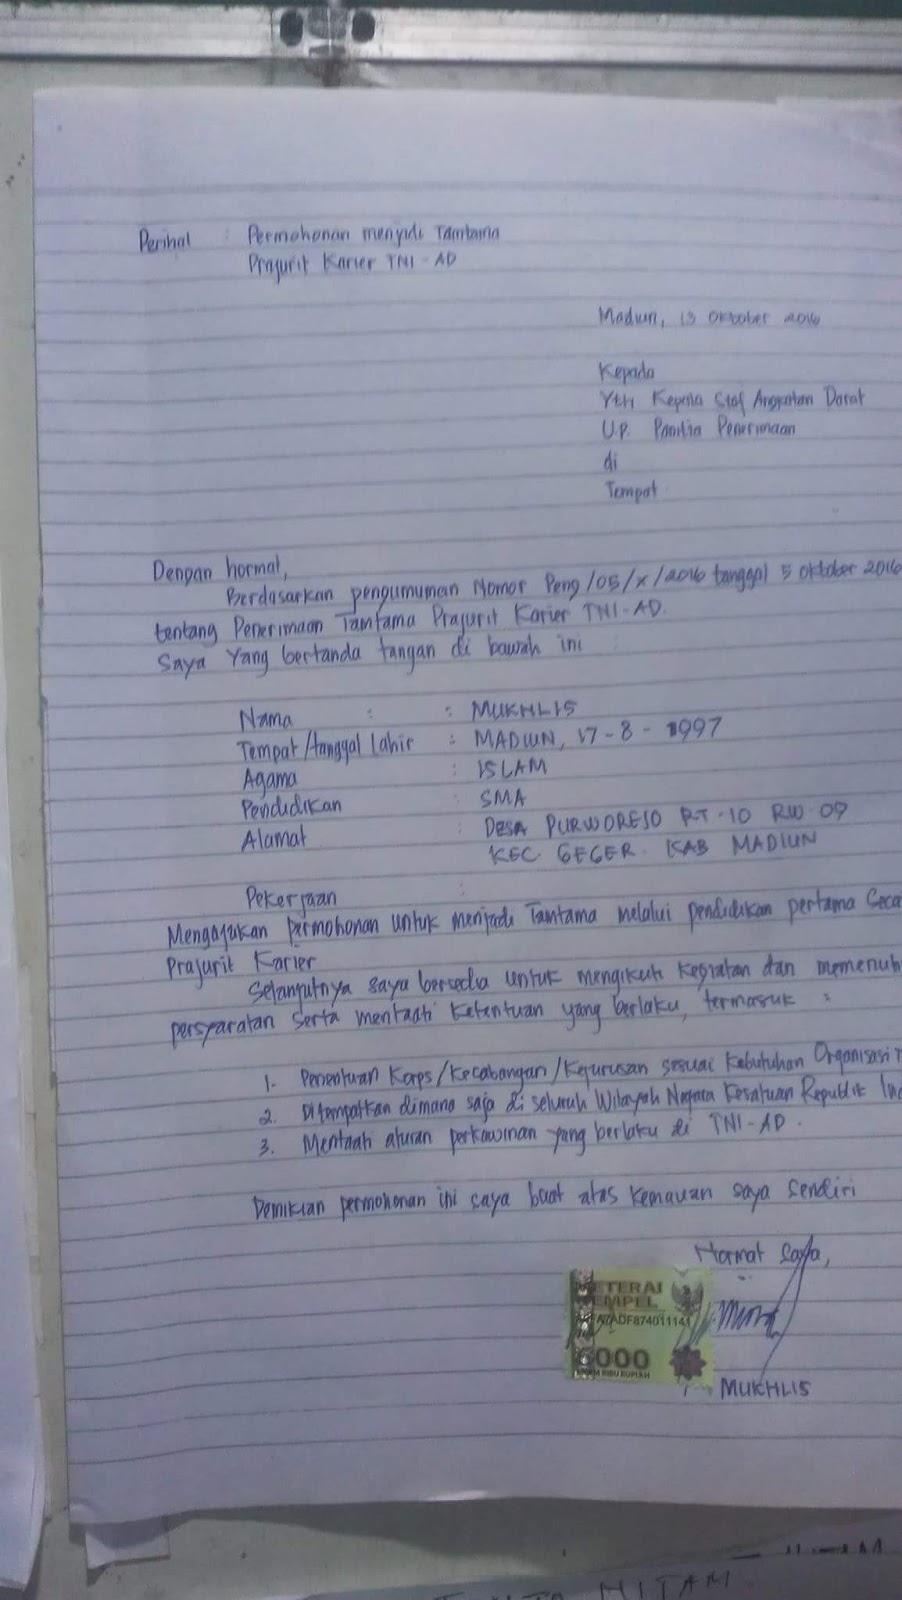 Perihal : Permohonan menjadi Tamtama
Prajurit Karier TNI-AD
Madiun, 13 Oktober 2016
Kepada
Yth Kepala Staf Angkatan Darat
U.P. Panitia Penerimaan
di
Tempat
Dengan hormat,
Berdasarkan pengumuman Nomor Peng/05/X/2016 tanggal 5 Oktober 2016
tentang Penerimaan Tamtama Prajurit Karier TNI-AD.
Saya Yang bertanda tangan di bawah ini :
Nama : : MUKHLIS
Tempat/tanggal lahir : MADIUN, 17-8-1997
Agama : ISLAM
Pendidikan : SMA
Alamat : DESA PURWOREJO RT.10 RW 09
KEC. GEGER. KAB MADIUN
Pekerjaan :
Mengajukan permohonan untuk menjadi Tamtama melalui pendidikan pertama Seca
Prajurit Karier
Selanjutnya saya bersedia untuk mengikuti kegiatan dan memenuhi
persyaratan serta mentaati ketentuan yang berlaku, termasuk :
1. Penentuan Korps/Kecabangan/Kejurusan sesuai kebutuhan Organisasi
2. Ditempatkan dimana saja di seluruh Wilayah Negara Kesatuan Republik
3. Mentaati aturan perkawinan yang berlaku di TNI-AD.
Demikian permohonan ini saya buat atas kemauan saya sendiri
Hormat Saya,
METERAI
TEMPEL
ADF874011141
6000
ENAM RIBU RUPIAH
MUKHLIS
HITAM